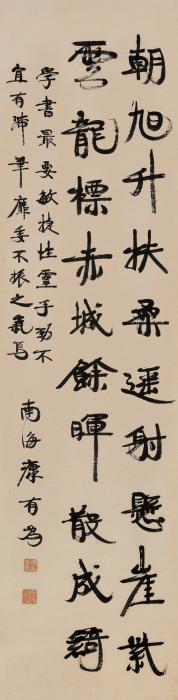 朝旭升扶桑遥射懸崖紫
雲龍標赤城餘暉散成綺
學書最要敏捷性靈手勁不
宜有滯筆靡委不振之氣焉
南海康有為